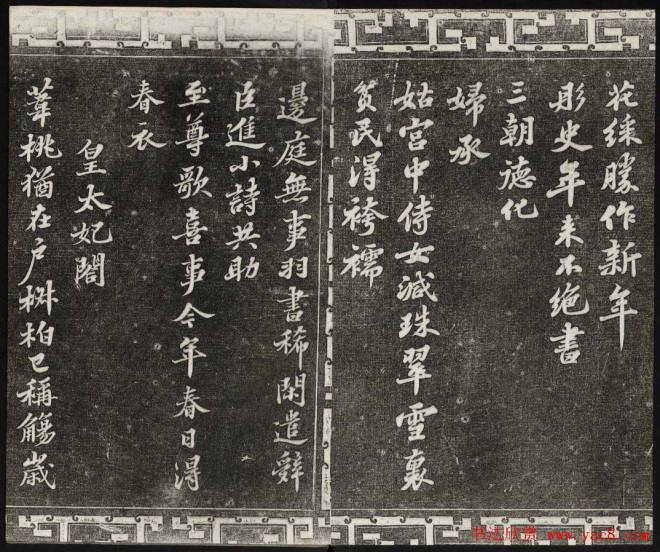 花絲勝作新年
彤史年来不絶書
三朝德化
婦承
姑宫中侍女減珠翠雪裏
貧民淂袴襦
邊庭無事羽書稀閑遣辞
臣進小詩共助
至尊歌喜事今年春日淂
春衣
皇太妃閤
葦桃猶在户椒柏已稱觴歳
书法欣赏 www.yac8.com